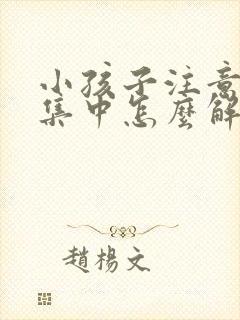 小孩子注意
集中怎麼解
趙楊文